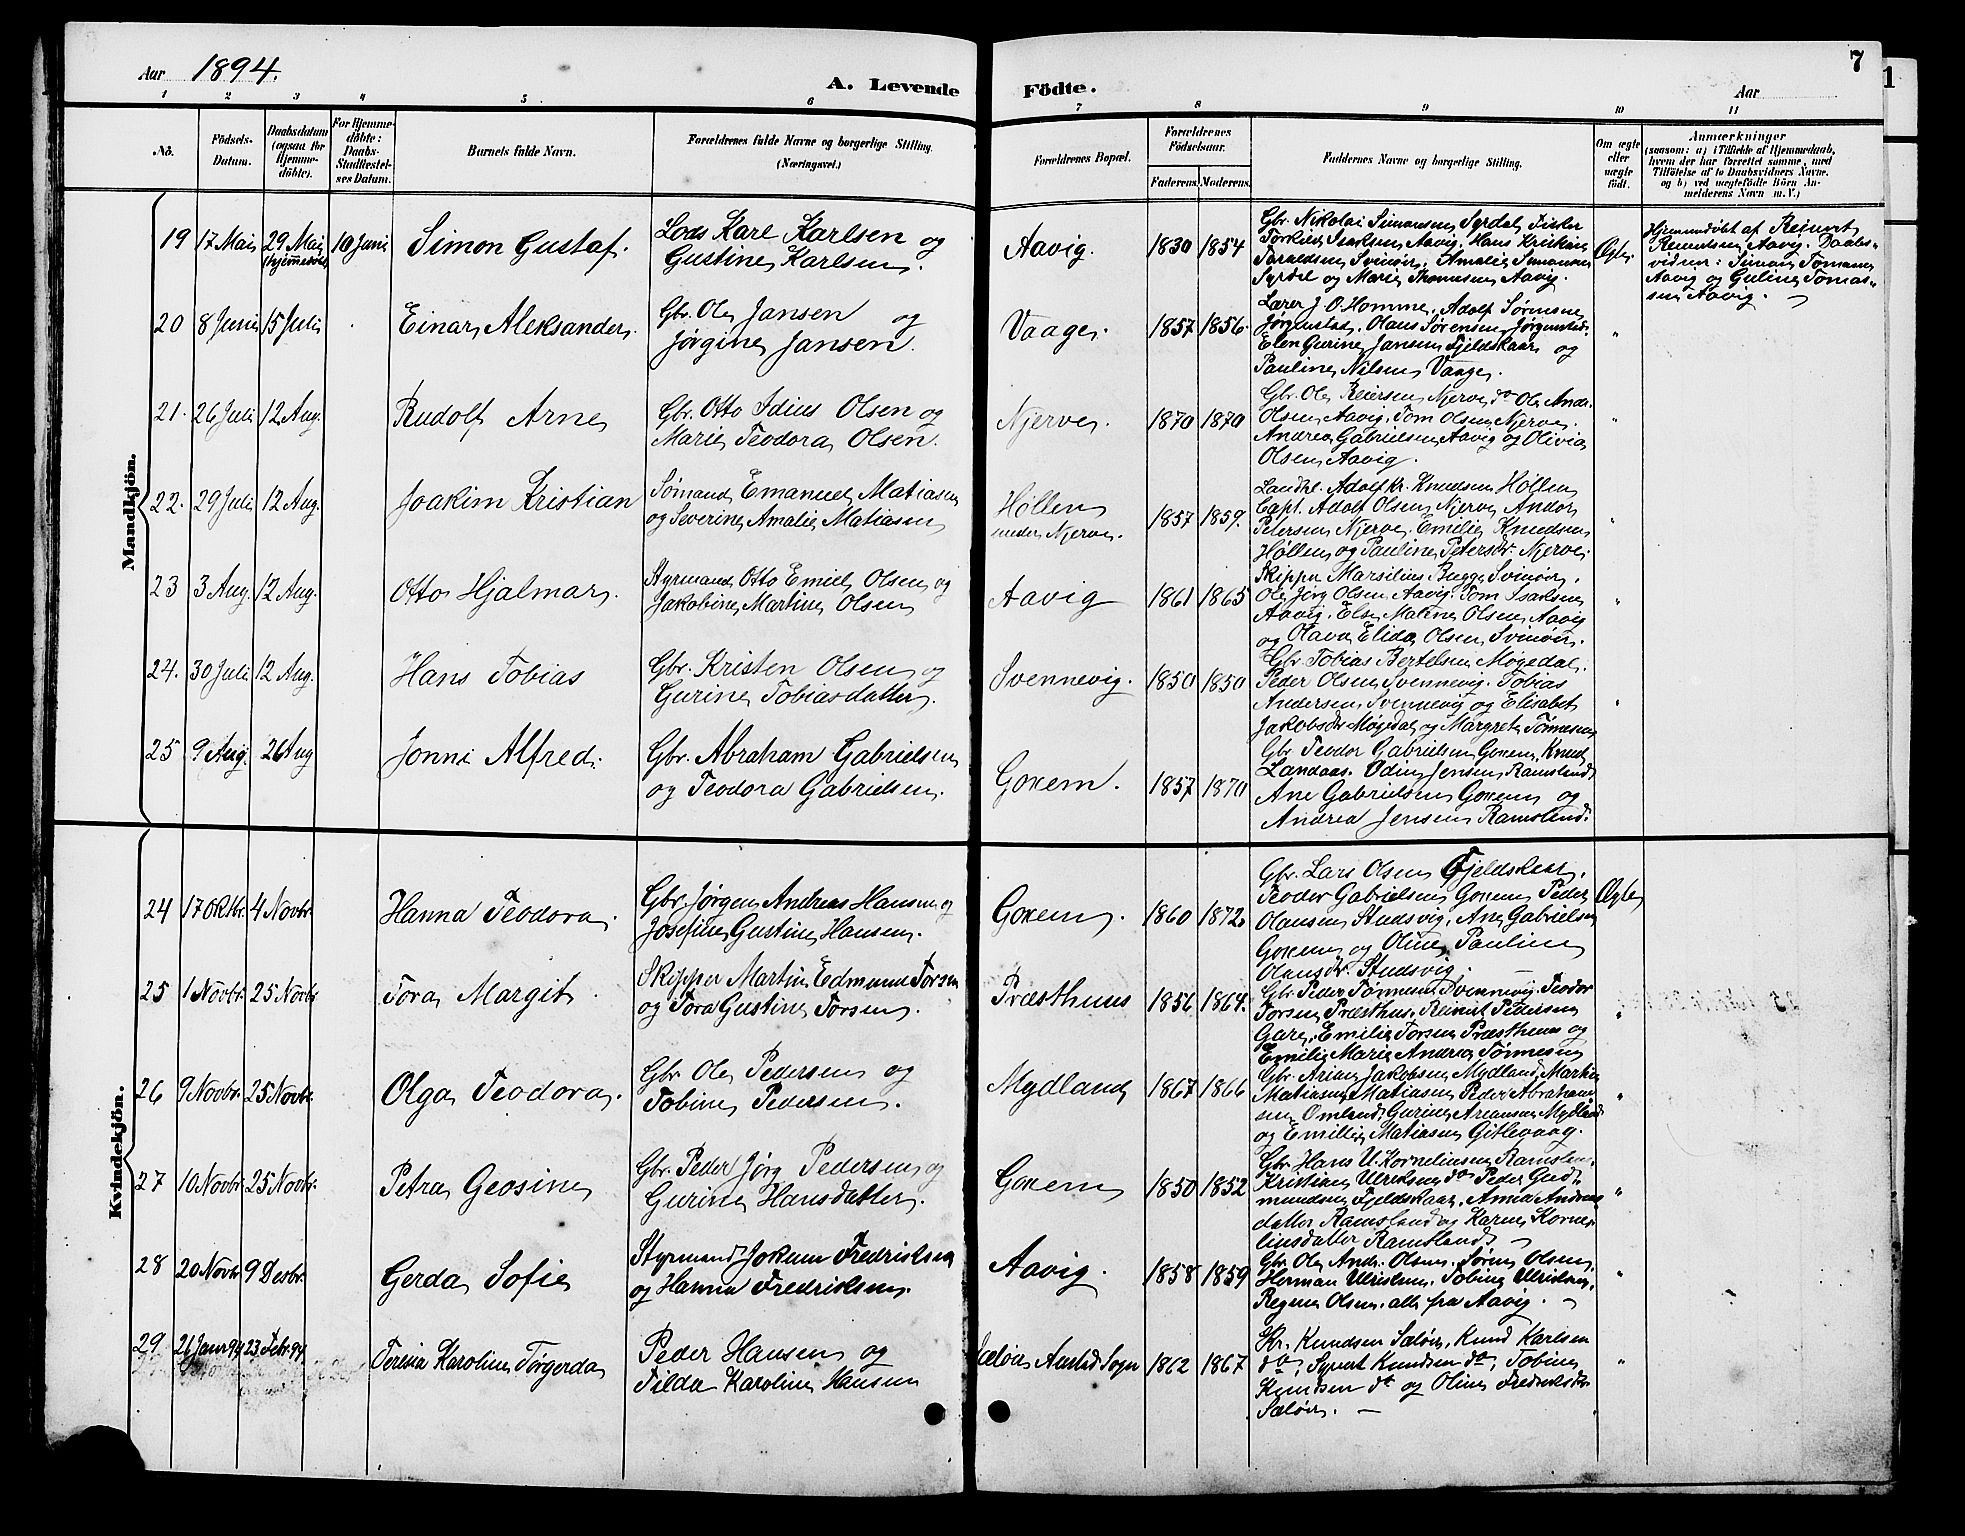 7
1
Aar 1894.
A. Levende Födte.
Aar
1 2 3 4 5 6 7 8 9 10 11
Nô.
Födsels-
Datum.
Daabsdatum
(ogsaa for
Hjemme-
döbte).
For Hjemme-
döbte:
Daabs-
Stadfæstel-
ses Datum.
Barnets fulde Navn.
Forældrenes fulde Navne og borgerlige Stilling.
(Næringsvei.)
Forældrenes Bopæl.
Forældrenes
Födselsaar.
Faderens. Moderens.
Faddernes Navne og borgerlige Stilling.
Om ægte
eller
uægte
födt.
Anmærkninger
(saasom: a) i Tilfælde af Hjemmedaab,
hvem der har forrettet samme, med
Tilföielse af to Daabsvidners Navne,
og b) ved uægtefödte Börn An-
melderens Navn m. V.)
Mandkjön.
19 17 Mai 29 Mai (hjemmedöbt) 10 Juni Simon Gustaf.
Lods Karl Karlsen og
Gustine Karlsen.
Aavig. 1830 1854
Gbr. Nikolai Simonsen Syrdal, Fisker
Torkild Isaksen Aavig, Hans Kristian
Svinör, Amalie Simonsen
Syrdal og Marie Thomesen Aavig.
Ægte.
Hjemmedöbt af Reinert
Reinertsen Aavig. Daabs-
vidner: Simon Tomassen
Aavig og Guline Tomas-
sen Aavig. —
20 8 Juni 15 Juli Einar Aleksander.
Gbr. Ole Jansen og
Jørgine Jansen.
Vaage. 1857 1856.
Lærer J. O. Homme, Adolf Sørensen
Jørgenstad, Olaus Sørensen Jørgenstad.
Elen Gurine Jansen Fjeldskaar og
Pauline Nilsen Vaage.
"
21. 26 Juli 12 Aug. Rudolf Arne
Gbr. Otto Idius Olsen og
Marie Teodora Olsen.
Njerve. 1870 1870
Gbr. Ole Reiersen Njerve, do Ole Andr.
Olsen Aavig, Tom Olsen Njerve.
Andrea Gabrielsen Aavig og Olivia
Olsen Aavig.
"
22. 29 Juli 12 Aug. Joakim Kristian
Sømand Emanuel Matiasen
og Severine Amalie Matiasen
Høllen
under Njerve. 1857 1859.
Landhl. Adolf Kr. Knudsen Høllen
Capt. Adolf Olsen Njerve, Andor
Petersen Njerve, Emilie Knudsen
Høllen og Pauline Petersdr. Njerve.
"
23 3 Aug. 12 Aug. Otto Hjalmar.
Styrmand Otto Emil Olsen og
Jakobine Martine Olsen
Aavig 1861 1865
Skipper Marsilius Bugge Svinör.
Ole Jörg Olsen Aavig, Tom Isaksen
Aavig. Else Maline Olsen Aavig
og Olava Elida Olsen Svinör.
"
24. 30 Juli 12 Aug. Hans Tobias
Gbr. Kristen Olsen og
Gurine Tobiasdatter.
Svennevig. 1850 1850
Gbr. Tobias Bertelsen Møgedal.
Peder Olsen Svennevig. Tobias
Andersen Svennevig og Elisabet
Jakobsdr. Møgedal og Margrete Tønnesen
"
25 9 Aug. 26 Aug Jonni Alfred.
Gbr. Abraham Gabrielsen
og Teodora Gabrielsen.
Goxem. 1857 1870
Gbr. Teodor Gabrielsen Goxem, Knud
Landaas. Odin Jensen Ramsland
Ane Gabrielsen Goxem og
Andrea Jensen Ramsland.
Kvindekjön.
24 17 Oktbr. 4 Novbr. Hanna Teodora.
Gbr. Jørgen Andreas Hansen og
Josefine Gustine Hansen.
Goxem. 1860 1872.
Gbr. Lars Olsen
Teodor Gabrielsen Goxem, Peder
Olausen Studsvig, Ane Gabrielsen
Goxem og Oline Pauline
Olausdr. Studsvig.
Ægte
25 1 Novbr. 25 Novbr. Tora Margit.
Skipper Martin Edmund Torsen
og Tora Gustine Torsen.
Præsthuus 1856 1864.
Gbr. Peder Tönnesen Svennevig, Teodor
Torsen Præsthus, Reinert Pedersen
Gare, Emilie Torsen Præsthuus og
Emilie Marie Andrea Tönnesen
"
26 9 Novbr. 25 Novbr. Olga Teodora.
Gbr. Ole Pedersen og
Tobine Pedersen.
Mydland 1867 1866
Gbr. Arian Jakobsen Mydland, Martin
Matiasen Peder Abraham-
sen Omland, Gurine Ariansen Mydland
og Emilie Matiasen Gitlevaag.
"
27 10 Novbr. 25 Novbr. Petra Geosine
Gbr. Peder Jörg Pedersen og
Gurine Hansdatter.
Goxem 1850 1852
Gbr. Hans U. Kornelinsen Ramslan.
Kristian Ulriksen do Peder Gud-
mundsen Fjeldskaar. Anna Andreas
datter Ramsland og Karen Korne-
linsdatter Ramsland. —
"
28 20 Novbr 9 Desbr. Gerda Sofie
Styrmand Jokum Fredriksen
og Hanna Fredriksen.
Aavig. 1858 1859
Gbr. Ole Andr. Olsen. Sören Olsen,
Herman Ulriksen, Tobine Ulriksen,
Regine Olsen. alle fra Aavig. —
"
29. 26 Janr 94 23 Febr. 94 Teresia Karoline Törgerda
Peder Hansen og
Tilda Karoline Hansen
Sælör Austad Sogn 1862 1867
Kr. Knudsen Sælör, Knud Karlsen
do, Syvert Knudsen do, Tobine
Knudsen do og Oline Fredriksdr.
Sælör. —
"